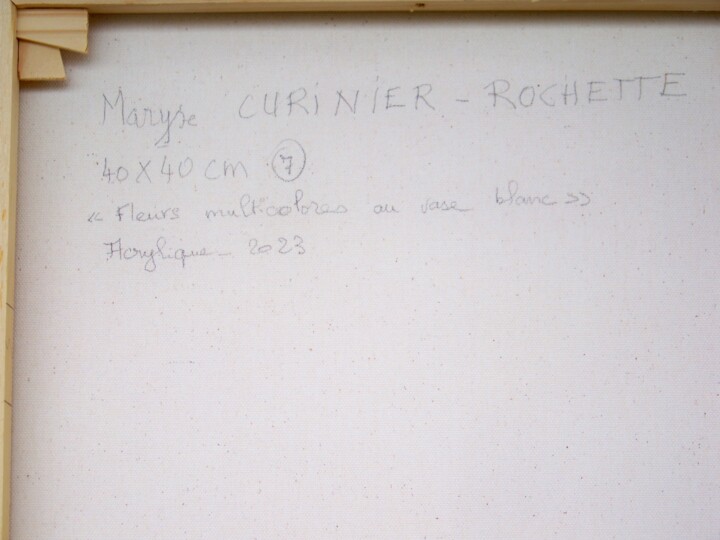 Maryse CURINIER - ROCHETTE
40 X 40 cm 7
« Fleurs multicolores au vase blanc »
Acrylique - 2023